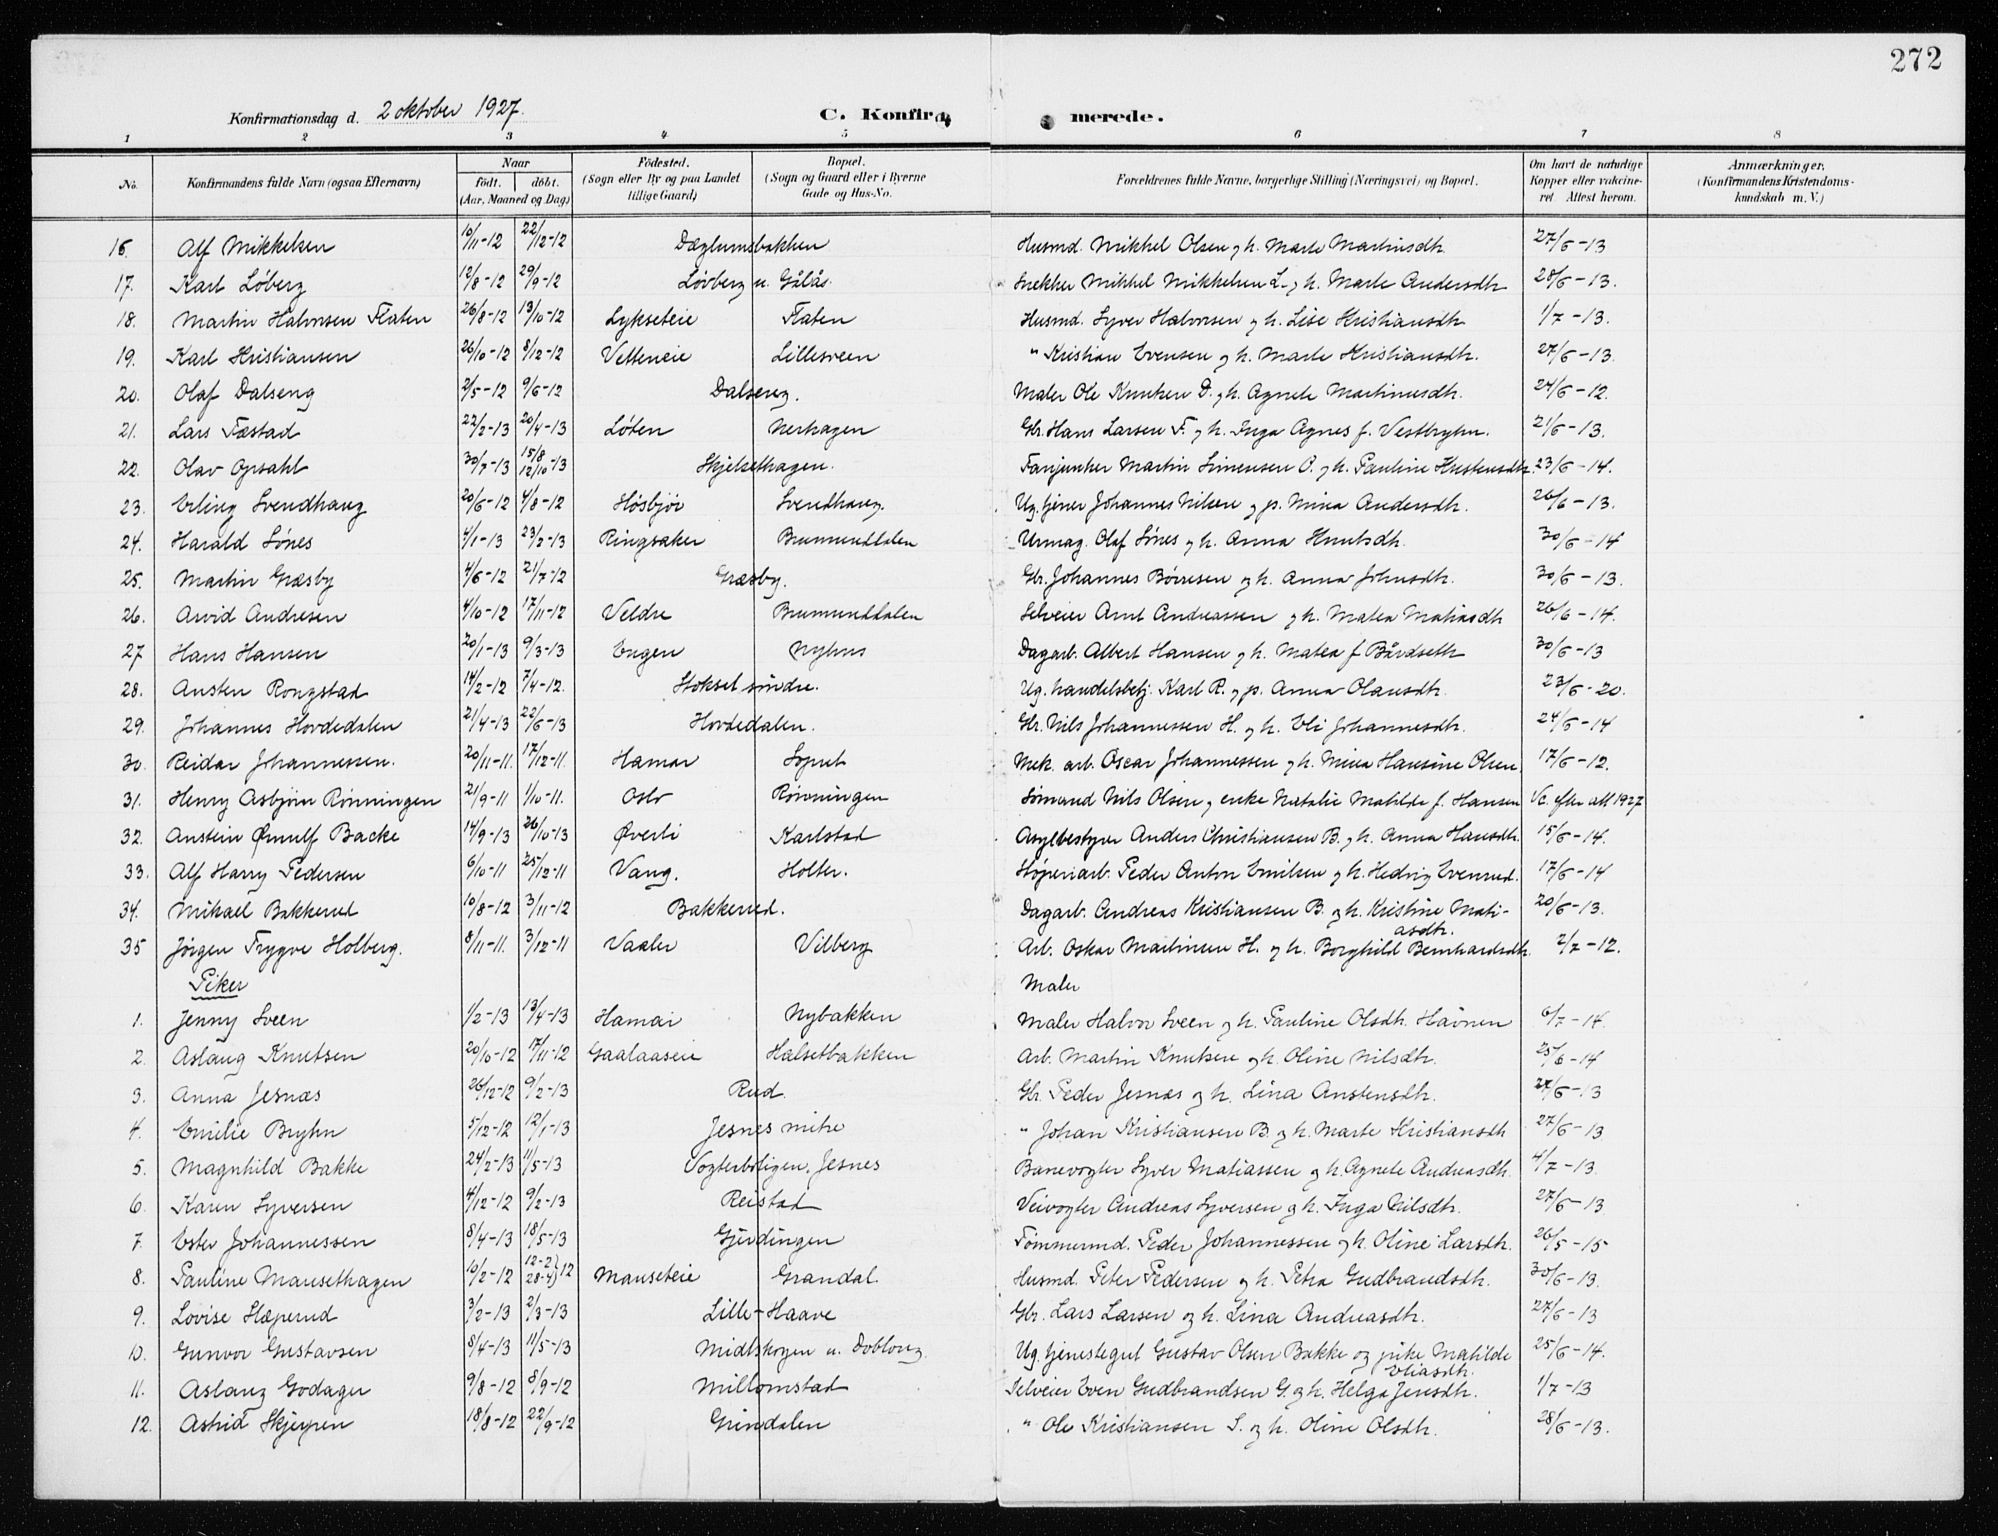 272
Konfirmationsdag d. 2 oktober 1927.
C. Konfir merede.
1 2 3 4 5 6 7 8
No. Konfirmandens fulde Navn (ogsaa Efternavn) Naar født. døbt. (Aar, Maaned og Dag) Fødested. (Sogn eller By og paa Landet tillige Gaard) Bopæl. (Sogn og Gaard eller i Byerne Gade og Hus-No. Forældrenes fulde Navne, borgerlige Stilling (Næringsvei) og Bopæl. Om havt de naturlige Kopper eller vakcineret. Attest herom. Anmærkninger. (Konfirmandens Kristendomskundskab m. V.)
16. Alf Mikkelsen 10/11-12 22/12-12 Dæglumsbakken Husmd. Mikkel Olsen og h. Marte Martinsdtr. 27/6-13
17. Karl Løberg 12/8-12 29/9-12 Løvberg u. Gålås. Snekker Mikkel Mikkelsen L. og h. Marte Andersdtr 28/6-13.
18. Martin Halvorsen Flaten 26/8-12 13/10-12 Lykseteie Flaten Husmd. Syver Halvorsen og h. Lise Kristiansdtr 1/7-13.
19. Karl Kristiansen 26/10-12 8/12-12 Vetteneie Lillesveen " Kristian Evensen og h. Marte Kristiansdtr. 27/6-13.
20. Olaf Dalseng 2/5-12 9/6-12 Dalseng. Maler Ole Knutsen D. og h. Agnete Martinusdtr. 24/6-12.
21. Lars Fæstad 22/2-13 20/4-13 Løten Nerhagen Gbr. Hans Larsen F. og h. Inga Agnes f. Vestbryhn. 21/6-13.
22. Olav Opsahl 30/7-13 15/8 12/10-13 Skjelsethagen. Fanjunker Martin Simensen O. og h. Pauline Kristensdtr. 23/6-14.
23. Erling Svendhaug 20/6-12 4/8-12 Høsbjør Svendhaug. Ug. tjener Johannes Nilsen og p. Mina Andersdtr. 26/6-13.
24. Harald Sønes 4/1-13 23/2-13 Ringsaker Brumunddalen Urmag. Olaf Sønes og h. Anna Knutsdtr. 30/6-14
25. Martin Græsby 4/6-12 21/7-12 Græsby. Gbr. Johannes Børresen og h. Anna Johnsdtr. 30/6-13.
26. Arvid Andresen 4/10-12 17/11-12 Veldre Brumunddalen Selveier Arnt Andreassen og h. Matea Matiasdtr 26/6-14.
27 Hans Hansen 20/1-13 9/3-13 Engen Nyhus Dagarb. Albert Hansen og h. Matea f Bårdseth 30/6-13
28. Austen Rongstad 14/2-12 7/4-12. Stokset søndre. Ug. handelsbetj. Karl R. og p. Anna Olausdtr. 23/6-20.
29. Johannes Hovdedalen 21/4-13 22/6-13 Hovdedalen. Gbr. Nils Johannessen H. og h. Eli Johannesdtr. 24/6-14
30. Reidar Johannessen. 20/11-11. 17/12-11. Hamar Mek. arb. Oscar Johannessen og h. Mina Hansine Olsen. 17/6-12.
31. Henry Asbjørn Rønningen 21/9-11 1/10-11. Oslo Rønningen Sømand Nils Olsen og enke Natalie Matilde f. Hansen Vc. efter att 1927
32. Anstein Ørnulf Backe 14/9-13 26/10-13 Øverli Karlstad Asylbestyrer Anders Christiansen B. og h. Anna Hansdtr. 15/6-14.
33. Alf Harry Pedersen 6/10-11 25/12-11 Vang. Holter. Høvleriarb. Peder Anton Emilsen og h. Hedvig Evensed. 17/6-14
34. Mikael Bakkerud 10/8-12 3/11-12 Bakkerud. Dagarb. Andreas Kristiansen B. og h. Kristine Matiasdtr. 20/6-13.
35 Jørgen Trygve Holberg. 8/11-11. 3/12-11 Vaaler Vilberg Arb. Oskar Martinsen H. og h. Borghild Bernhardsdtr. 2/7-12.
Piker Maler
1. Jenny Sveen 1/2-13 13/4-13 Hamar Nybakken Maler Halvor Sveen og h. Pauline Olsdtr. Havnen 6/7-14.
2. Aslaug Knutsen 20/10-12 17/11-12 Gaalaaseie Halsetbakken Arb. Martin Knutsen og h. Oline Nilsdtr. 25/6-14
3. Anna Jesnæs 26/12-12 9/2-13 Rud. Gbr. Peder Jesnæs og h. Lina Austensdtr. 27/6-13
4. Emilie Bryhn 5/12-12 12/1-13 Jesnes mitre " Johan Kristiansen B. og h. Marte Kristiansdtr 27/6-13
5. Magnhild Bakke 24/2-13 11/5-13 Vogterboligen, Jesnes Banevogter Syver Matiassen og h. Agnete Andreasdtr. 4/7-13.
6. Karen Syversen 4/12-12 9/2-13 Reistad Veivogter Andreas Syversen og h. Inga Nilsdtr. 27/6-13
7. Ester Johannessen 8/4-13 18/5-13 Gjerdingen Tømmermd. Peder Johannessen og h. Oline Larsdtr. 26/5-15
8. Pauline Mausethagen 10/2-12 12-2 28-4 }12 Mauseteie Grandal. Husmd. Peter Pedersen og h. Petra Gudbrandsdtr. 30/6-13.
9. Lovise Hæperud 3/2-13 2/3-13 Lille-Haave Gbr. Lars Larsen og h. Lina Andreasdtr. 27/6-13
10. Gunvor Gustavsen 8/4-13 11/5-13 Midtskogen u. Dobloug. Ug. tjenestegut Gustav Olsen Bakke og pike Matilde Eliasdtr. 25/6-14.
11. Aslaug Godager 9/8-12 8/9-12 Millomstad Selveier Even Gudbrandsen G. og h. Helga Jensdtr. 1/7-13
12. Astrid Skjegren 18/8-12 22/9-12 Grindalen " Ole Kristiansen S. og h. Oline Olsdtr. 28/6-13.